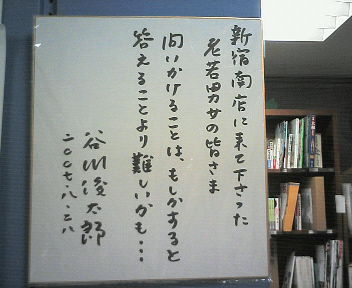 新宿南店に来て下さった
老若男女の皆さま
問いかけることは、もしかすると
答えることより難しいかも・・・
谷川俊太郎
二〇〇七・八・二八